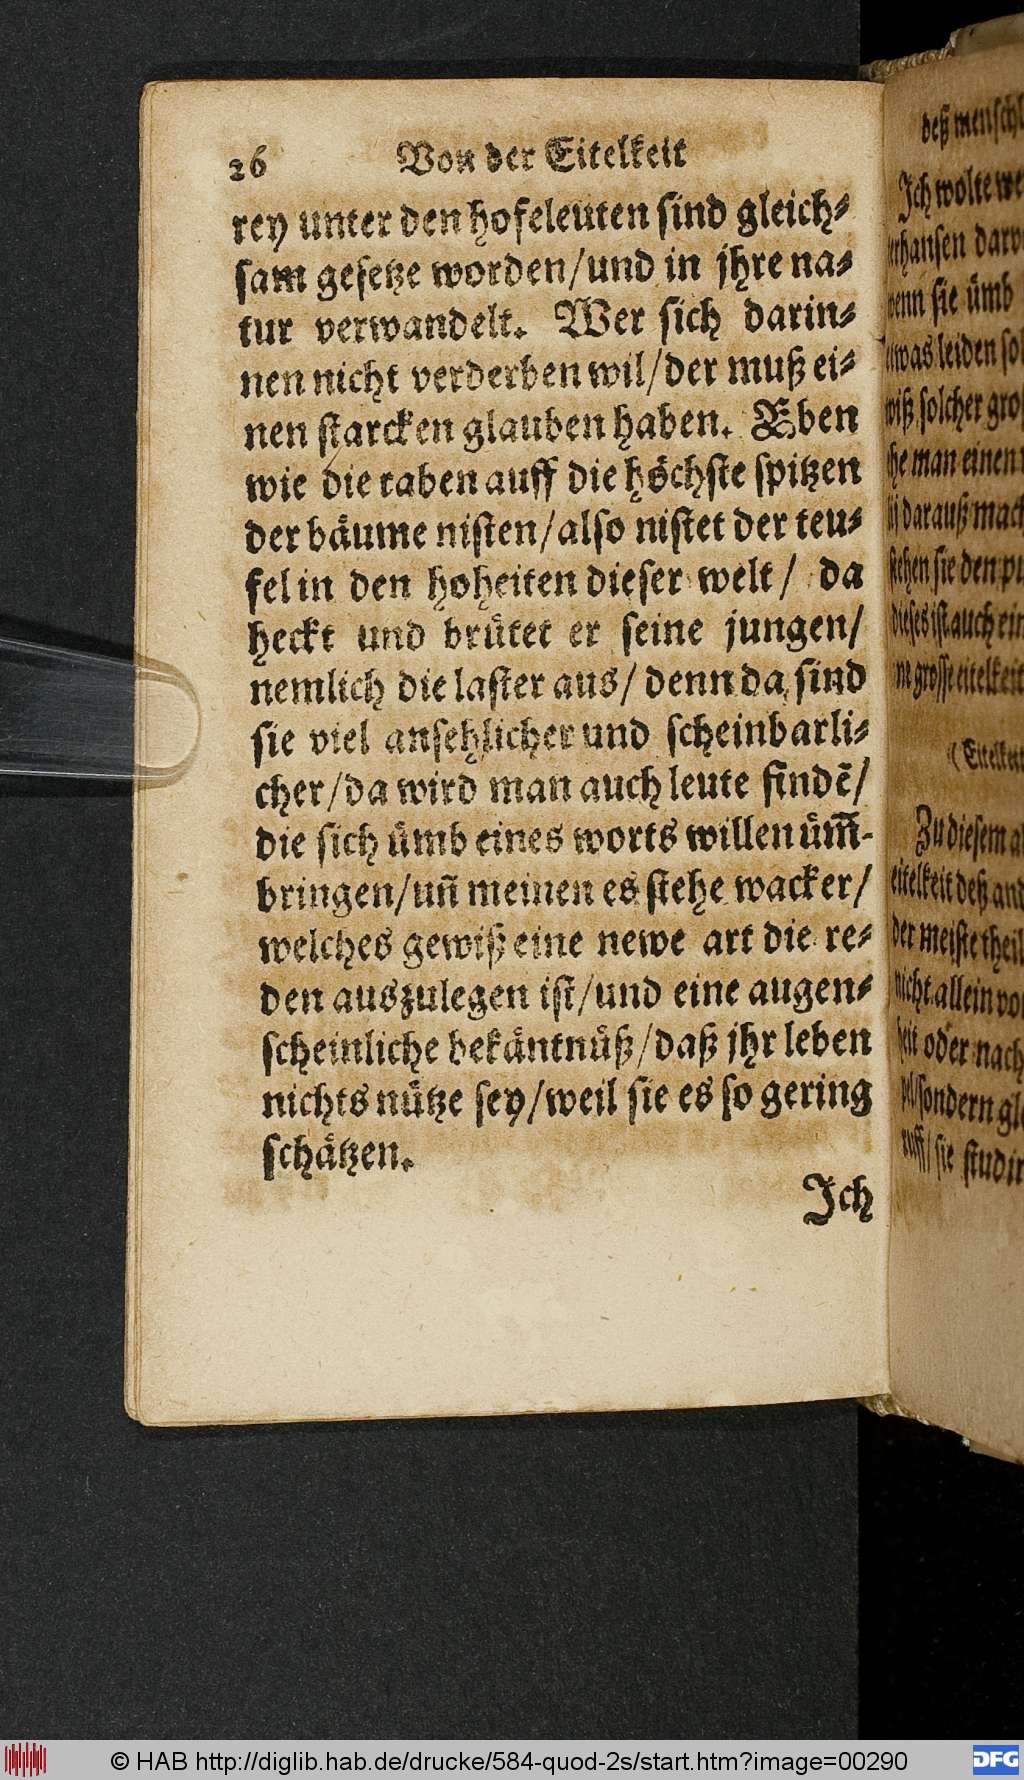 26 Von der Eitelkeit
rey unter den hofeleuten sind gleich⸗
sam gesetze worden/und in jhre na⸗
tur verwandelt. Wer sich darin⸗
nen nicht verderben wil/der muß ei⸗
nen starcken glauben haben. Eben
wie die raben auff die hoͤchste spitzen
der baͤume nisten/also nistet der teu⸗
fel in den hoheiten dieser welt/ da
heckt und bruͤtet er seine jungen/
nemlich die laster aus/ denn da sind
sie viel ansehlicher und scheinbarli⸗
cher/da wird man auch leute findē/
die sich uͤmb eines worts willen uͤm̄-
bringen/un̄ meinen es stehe wacker/
welches gewiß eine newe art die re⸗
den auszulegen ist/und eine augen⸗
scheinliche bekaͤntnuͤß/daß jhr leben
nichts nuͤtze sey/weil sie es so gering
schaͤtzen.
Ich
deß menschl
Ich wolte we
hansen dar
wenn sie uͤmb
was leiden so
solcher gro
he man einen
darauß mach
stehen sie den
dieses ist auch ein
ne grosse eitelkeit
(Eitelkeit
Zu diesem a
eitelkeit deß and
der meiste theil
nicht allein vo
heit oder nach
sondern gl
auff/sie studir
© HAB http://diglib.hab.de/drucke/584-quod-2s/start.htm?image=00290
DFG